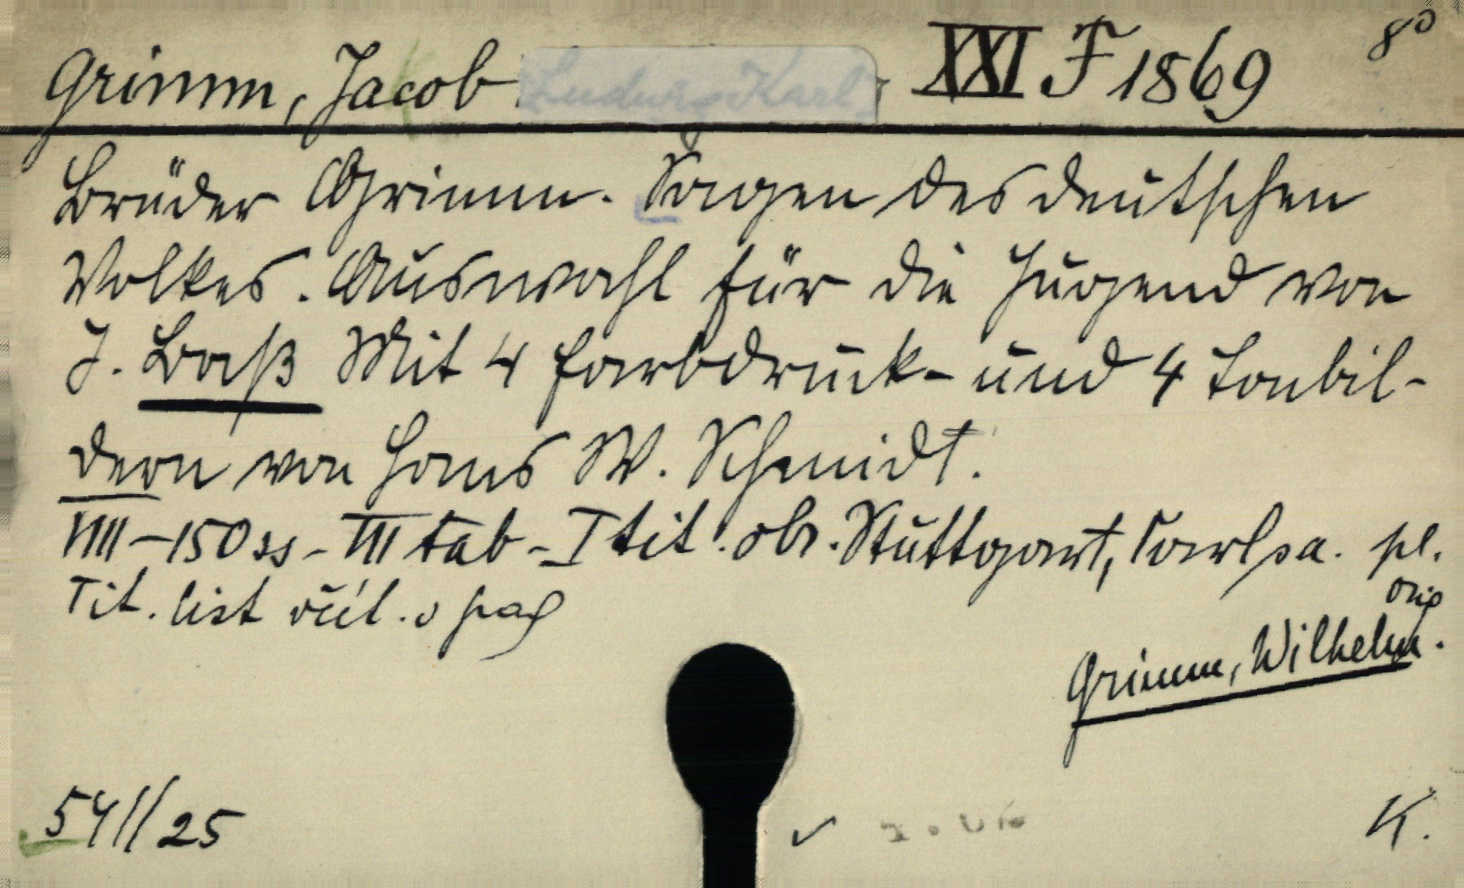 Grimm, Jacob Ludwig Karl XXI F 1869 8°
Brüder Grimm. Sagen des deutschen
Volkes. Auswahl für die Jugend von
J. Baß Mit 4 Farbdruck- und 4 Tonbil-
dern von Hans W. Schmidt.
VIII-150 ss - III tab - I tit. obr. Stuttgart, s.a. pl.
Tit. list včít. v pag orig
Grimm, Wilhelm.
5411/25 K.